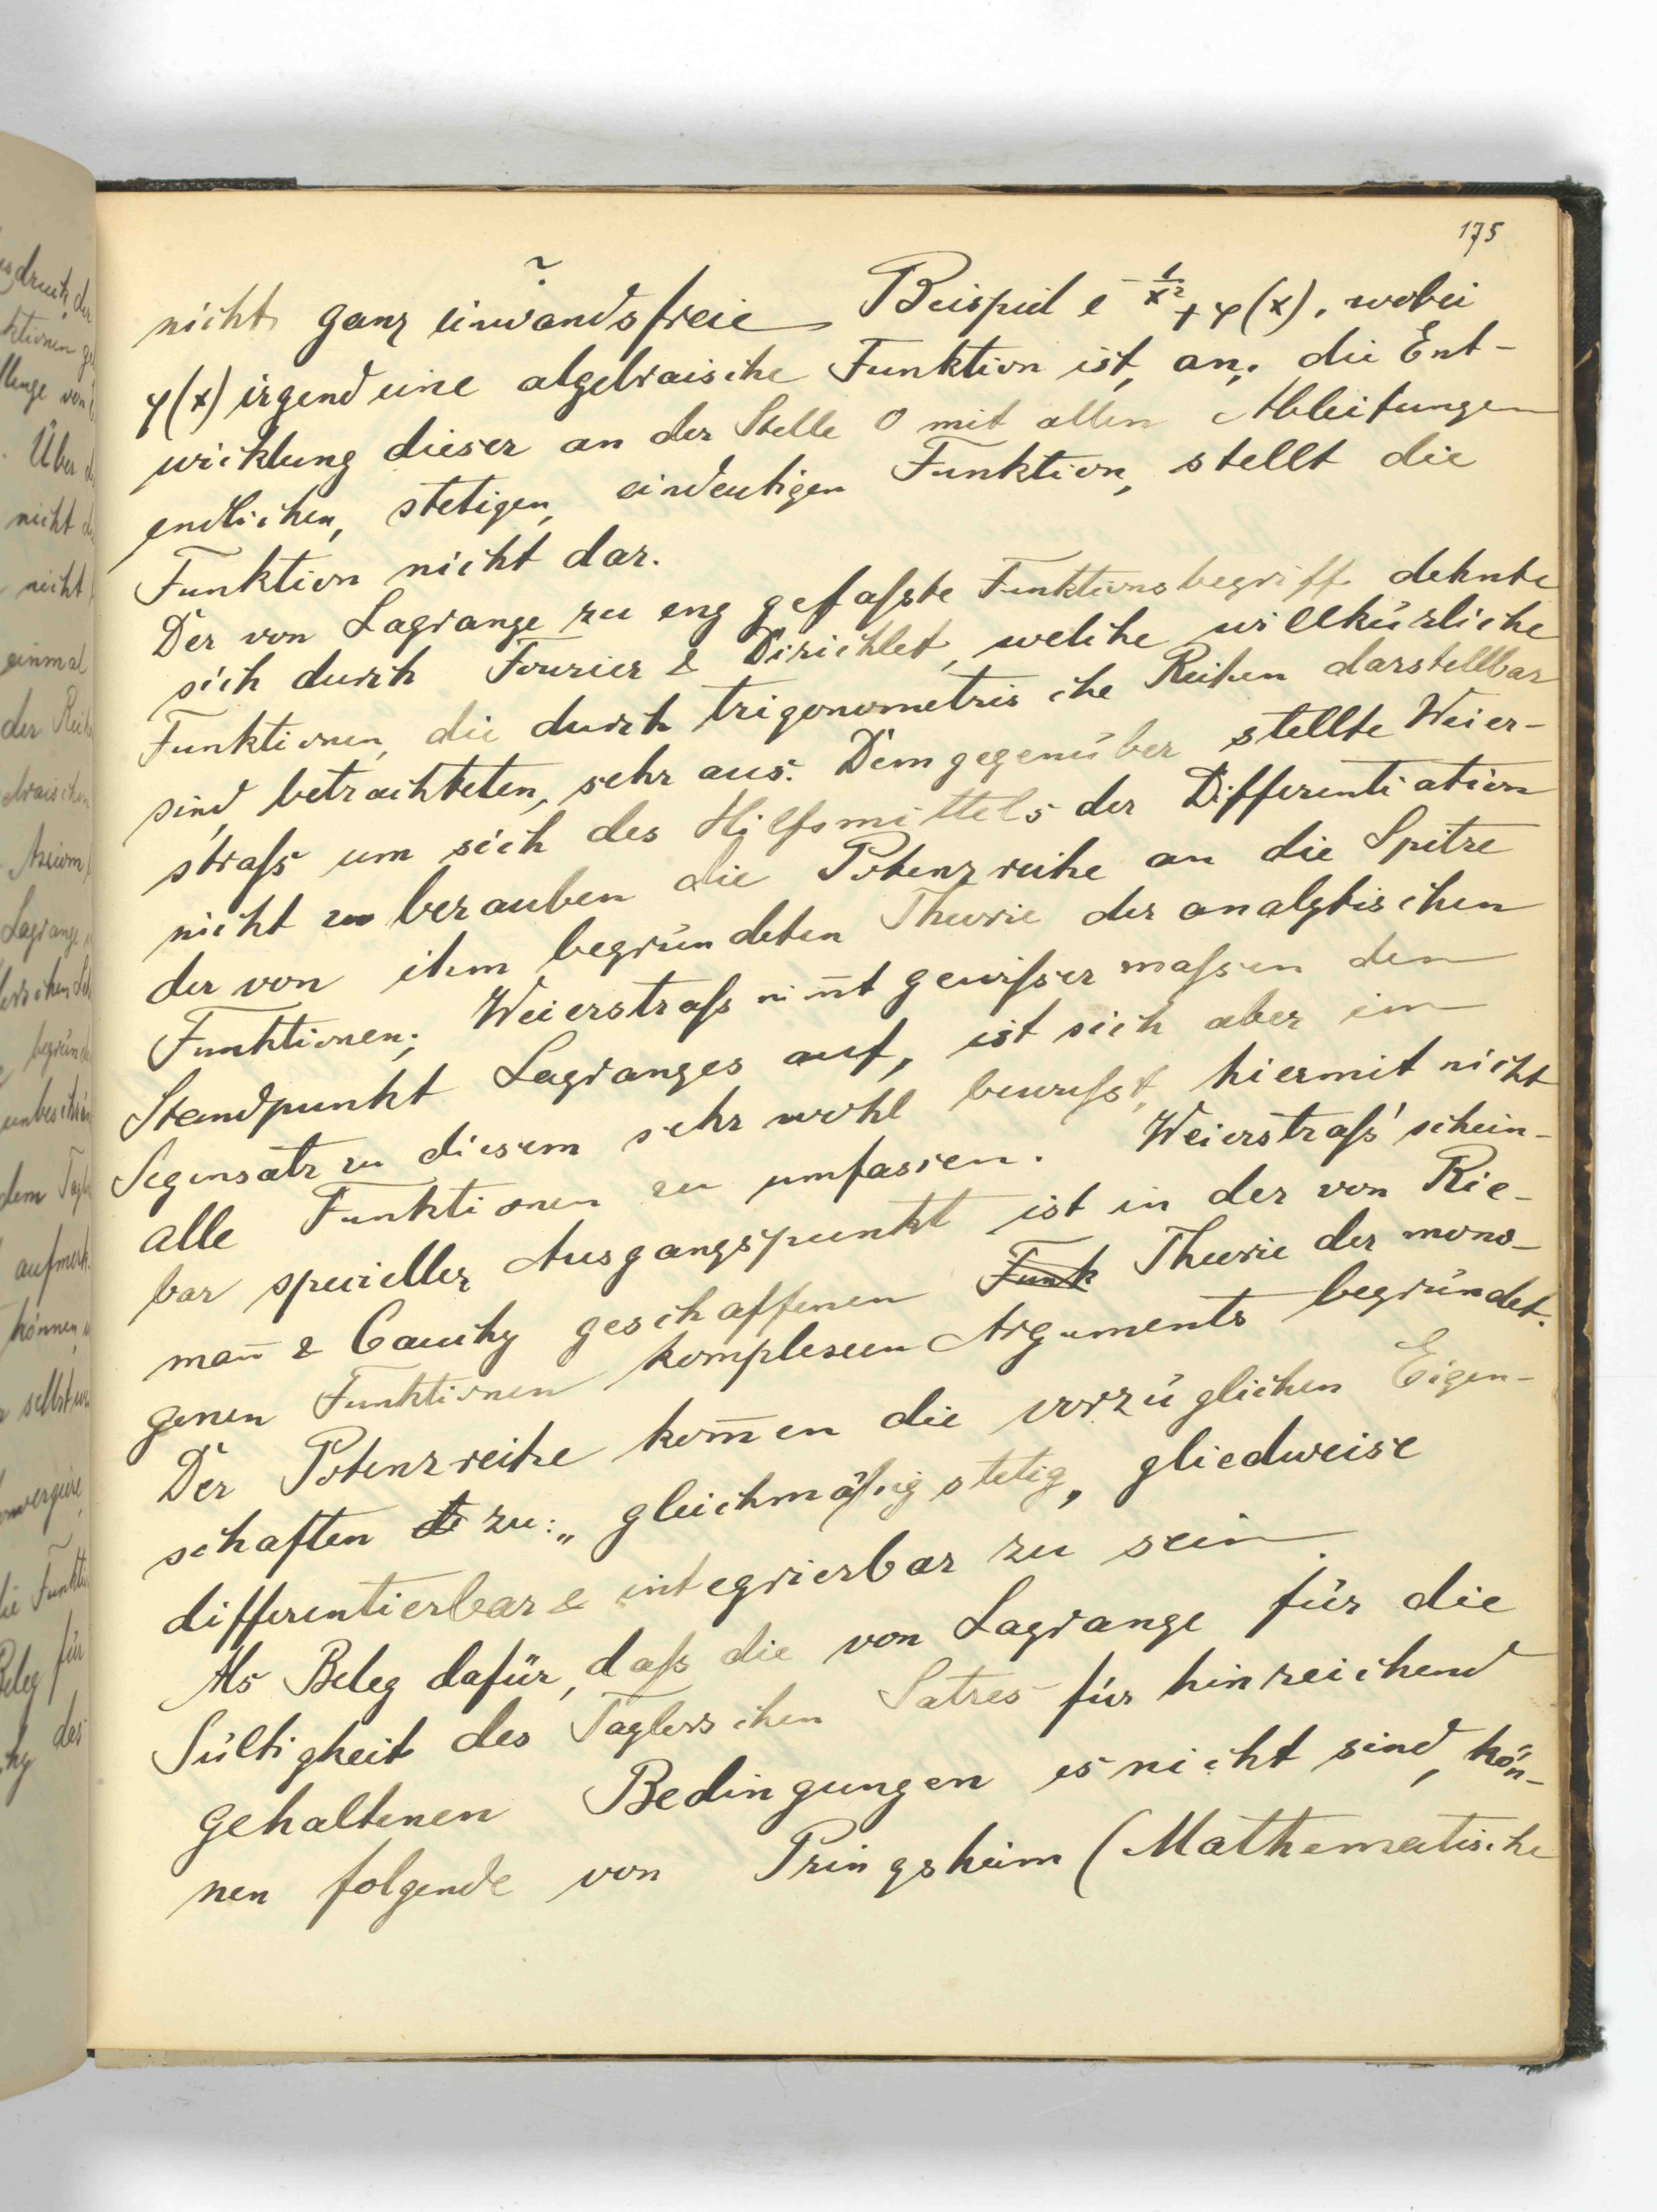 175
nicht ganz einwandsfreie Beispiel e^{-1/x²} + φ(x), wobei
φ(x) irgend eine algebraische Funktion ist, an; die Ent-
wicklung dieser an der Stelle 0 mit allen Ableitungen
endlichen, stetigen, eindeutigen Funktion, stellt die
Funktion nicht dar.
Der von Lagrange zu eng gefaßte Funktionsbegriff dehnte
sich durch Fourier & Dirichlet, welche willkürliche
Funktionen, die durch trigonometrische Reihen darstellbar
sind, betrachteten, sehr aus. Demgegenüber stellte Weier-
straß um sich des Hilfsmittels der Differentiation
nicht zu berauben die Potenzreihe an die Spitze
der von ihm begründeten Theorie der analytischen
Funktionen; Weierstraß nim̅t gewißermaßen den
Standpunkt Lagranges auf, ist sich aber im
Gegensatz zu diesem sehr wohl bewußt, hiermit nicht
alle Funktionen zu umfassen. Weierstraß' schein-
bar specieller Ausgangspunkt ist in der von Rie-
man̅ & Cauchy geschaffenen Funk Theorie der mono-
genen Funktionen komplexen Arguments begründet.
Der Potenzreihe kom̅en die vorzüglichen Eigen-
schaften zu: „ gleichmäßig stetig, gliedweise
differentierbar & integrierbar zu sein.
Als Beleg dafür, daß die von Lagrange für die
Gültigkeit des Taylorschen Satzes für hinreichend
gehaltenen Bedingungen es nicht sind, kön-
nen folgende von Pringsheim (Mathematische